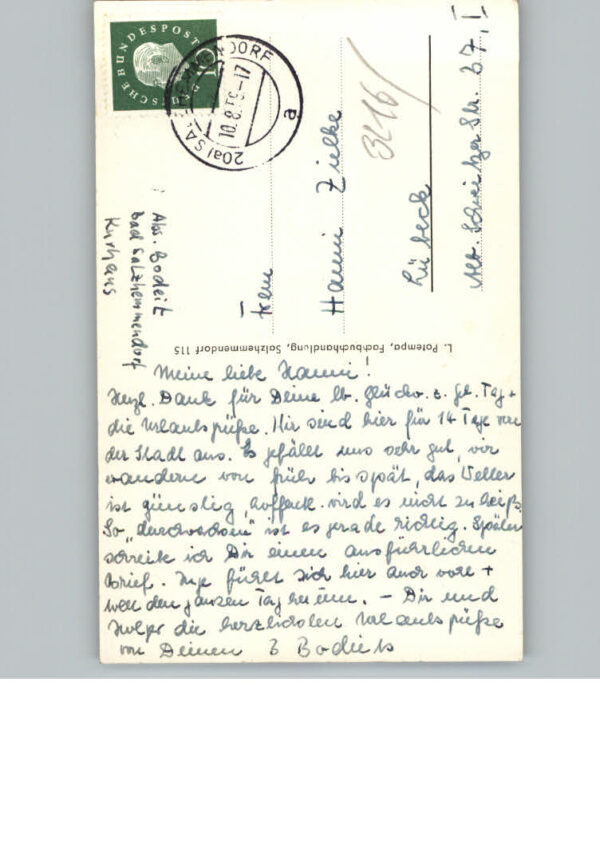 DEUTSCHE BUNDESPOST
10
20a SALZHEMMENDORF
10.8.59-17
a
Abs. Bodeit
Bad Salzhemmendorf
Kurhaus
Hanni Zielke
Lübeck
Str. 37, I
L. Potempa, Fachbuchhandlung, Salzhemmendorf 115
Meine liebe Hanni!
Herzl. Dank für Deine lb. Glückw. z. Geb. Tag +
die Urlaubsgrüße. Wir sind hier für 14 Tage von
der Stadt aus. Es gefällt uns sehr gut, wir
wandern von früh bis spät, das Wetter
ist günstig, hoffentl. wird es nicht zu heiß.
So "durchwachsen" ist es gerade richtig. Später
schreibe ich Dir einen ausführlichen
Brief. Inge fühlt sich hier auch wohl +
den ganzen Tag herum. – Dir und
Holger die herzlichsten Urlaubsgrüße
von Deinen 3 Bodeits